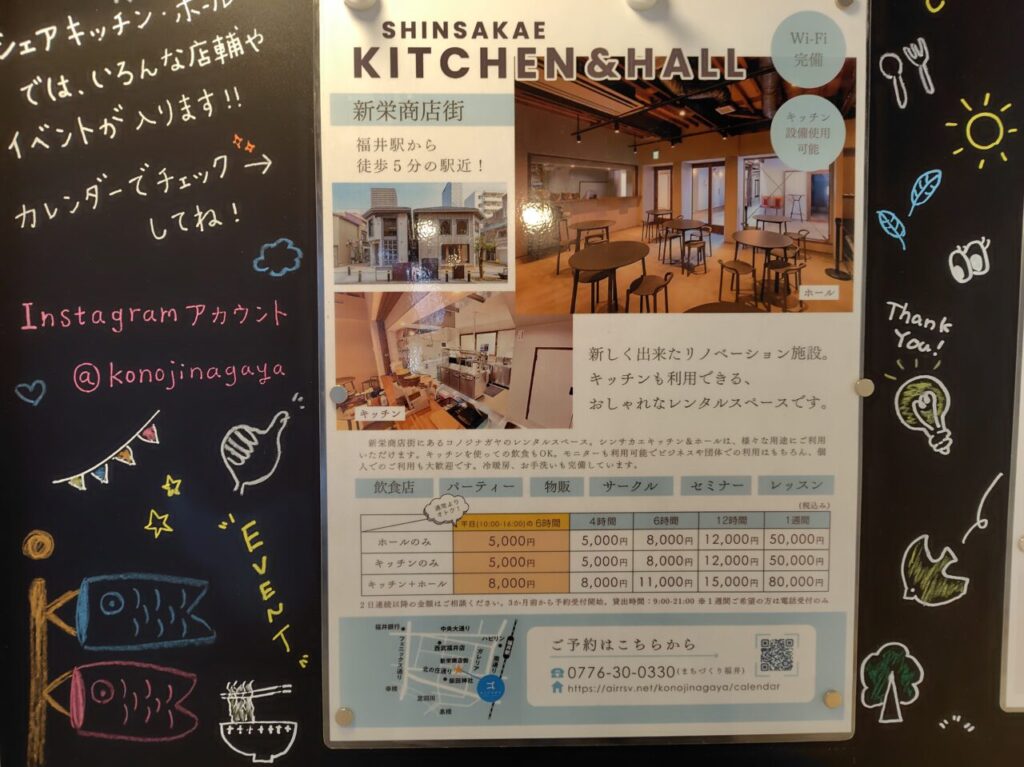 シェアキッチン・ホール
では、いろんな店舗や
イベントが入ります!!
カレンダーでチェック→
してね!
Instagramアカウント
@konojinagaya
EVENT
SHINSAKAE
KITCHEN&HALL
Wi-Fi
完備
キッチン
設備使用
可能
新栄商店街
福井駅から
徒歩5分の駅近!
ホール
キッチン
新しく出来たリノベーション施設。
キッチンも利用できる、
おしゃれなレンタルスペースです。
新栄商店街にあるコノジナガヤのレンタルスペース。シンサカエキッチン&ホールは、様々な用途にご利用
いただけます。キッチンを使っての飲食もOK。モニターも利用可能でビジネスや団体での利用はもちろん、個
人でのご利用も大歓迎です。冷暖房、お手洗いも完備しています。
飲食店 パーティー 物販 サークル セミナー レッスン
(税込み)
通常より
オトク!
平日(10:00-16:00)の6時間 4時間 6時間 12時間 1週間
ホールのみ 5,000円 5,000円 8,000円 12,000円 50,000円
キッチンのみ 5,000円 5,000円 8,000円 12,000円 50,000円
キッチン+ホール 8,000円 8,000円 11,000円 15,000円 80,000円
2日連続以降の金額はご相談ください。3か月前から予約受付開始。貸出時間:9:00-21:00 ※1週間ご希望の方は電話受付のみ
福井銀行
中央大通り
ハピリン
フェニックス通り
西武福井店
新栄商店街
ガレリア
北の庄通り
柴田神社
足羽川
幸橋
ご予約はこちらから
0776-30-0330(まちづくり福井)
https://airrsv.net/konojinagaya/calendar
Thank
You!